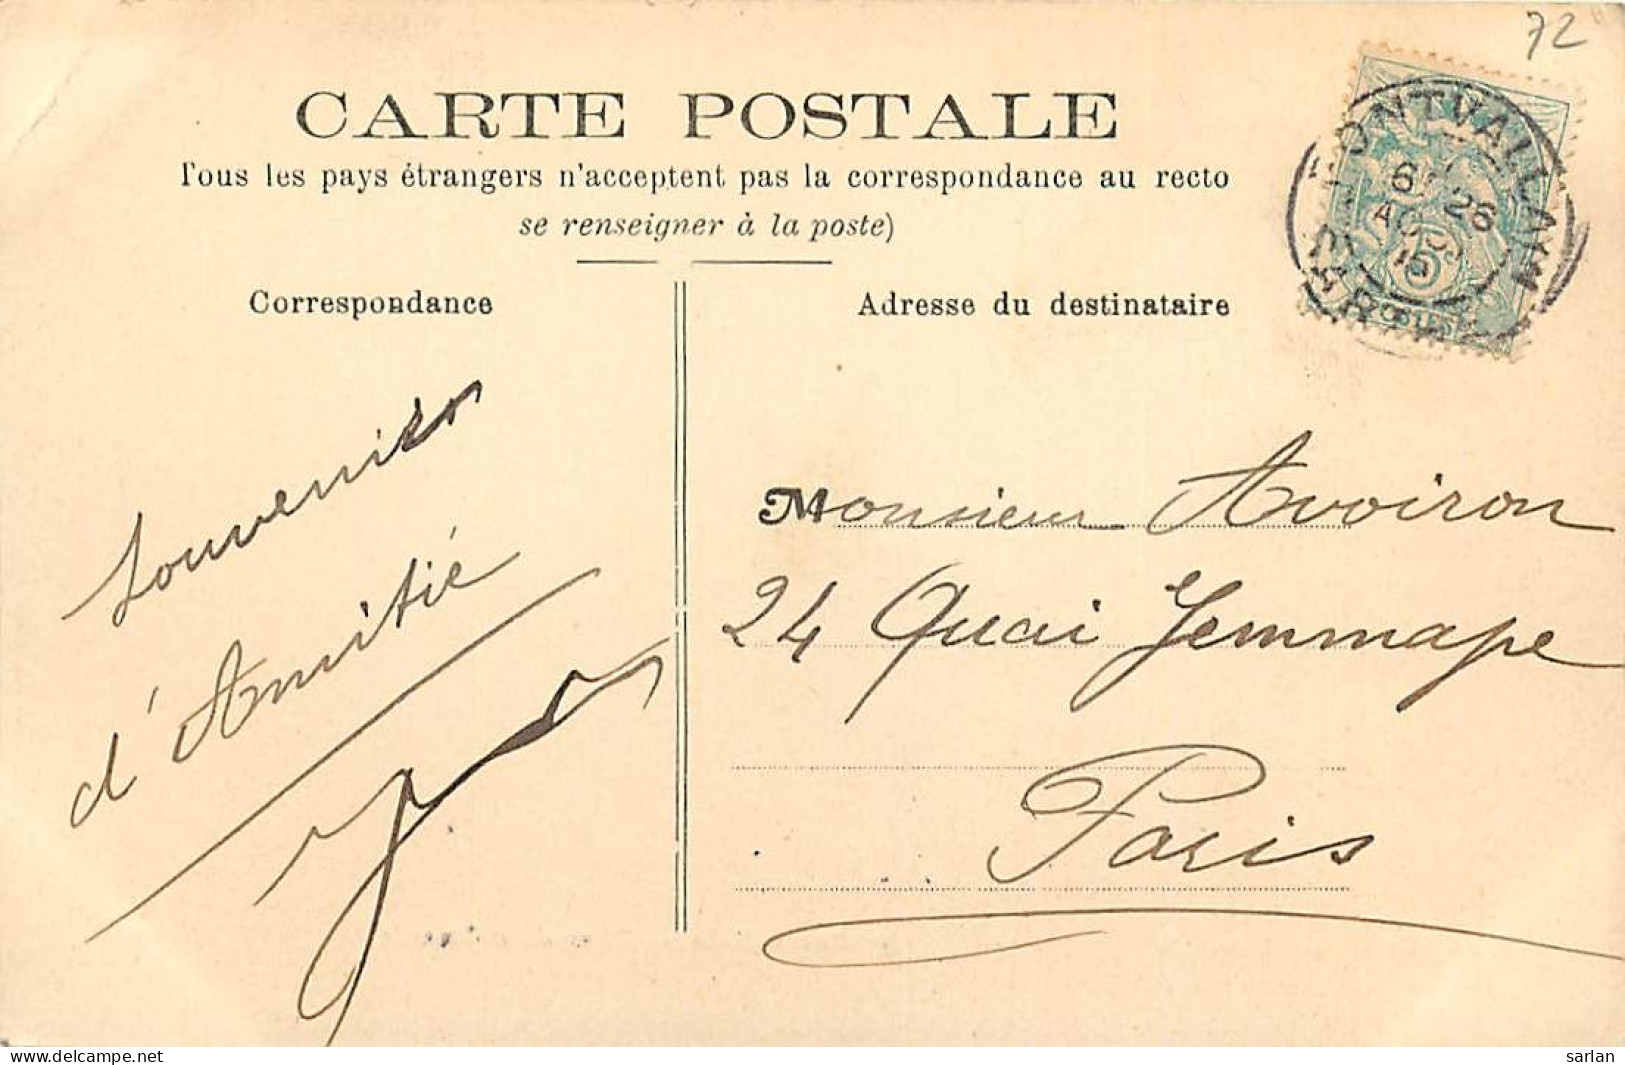 72
CARTE POSTALE
Tous les pays étrangers n'acceptent pas la correspondance au recto
se renseigner à la poste)
Correspondance
Adresse du destinataire
PONTVALLAIN
6
26
AOU
SARTHE
5
POSTES
Souvenir
d'Amitié
Monsieur Avoiron
24 Quai Jemmape
Paris
www.delcampe.net
sarlan